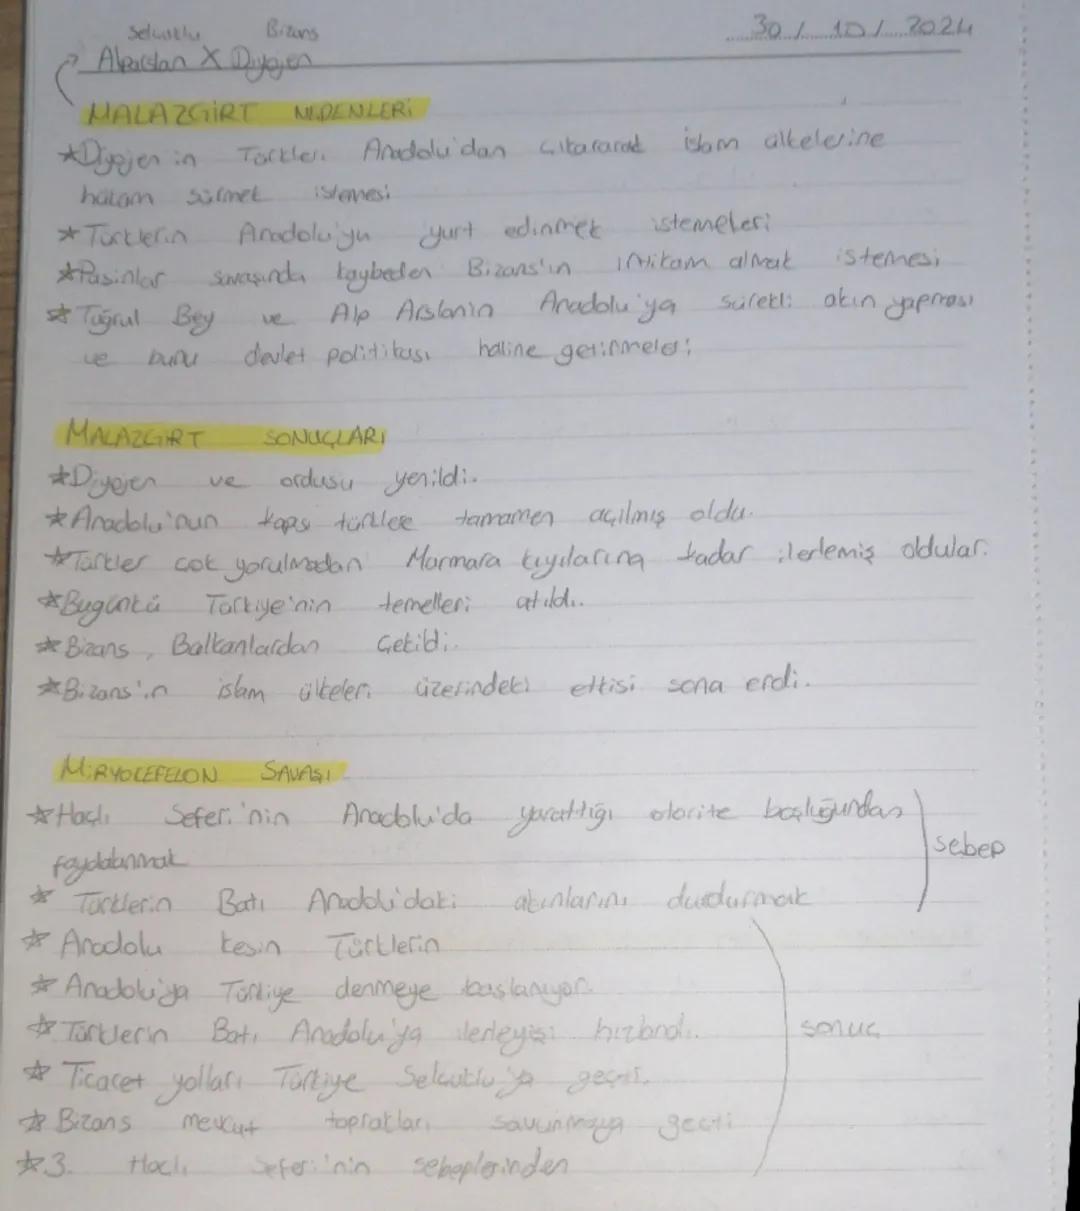 Selçuklu Bizans
30 / 10 / 2024
Alparslan X Diyojen
MALAZGİRT NEDENLERİ
*Diyojen'in Türkleri Anadolu'dan çıkararak islam ülkelerine
hakim sürmek istemesi
*Türklerin Anadolu'yu yurt edinmek istemeleri
*Pasinlar savaşında kaybeden Bizans'ın intikam almak istemesi
*Tuğrul Bey ve Alp Arslanın Anadolu'ya sürekli akın yapması
ve bunu devlet politikası haline getirmeleri
MALAZGİRT SONUÇLARI
*Diyojen ve ordusu yenildi.
*Anadolu'nun kapısı türklere tamamen açılmış oldu.
*Türkler çok yorulmadan Marmara kıyılarına kadar ilerlemiş oldular.
*Bugünkü Türkiye'nin temelleri atıldı.
*Bizans, Balkanlardan çekildi.
*Bizans'ın islam ülkeleri üzerindeki etkisi sona erdi.
MİRYOKEFELON SAVAŞI
*Haçlı Seferi'nin Anadolu'da yarattığı otorite boşluğundan
faydalanmak
sebep
* Türklerin Batı Anadolu'daki akınlarını durdurmak
* Anadolu kesin Türklerin
* Anadolu'ya Türkiye denmeye başlanıyor.
* Türklerin Batı Anadolu'ya ilerleyişi hızlandı.
sonuç
* Ticaret yolları Türkiye Selçuklu'ya geçti.
* Bizans mevcut toprakları savunmaya geçti
*3. Haçlı Seferi'nin sebeplerinden